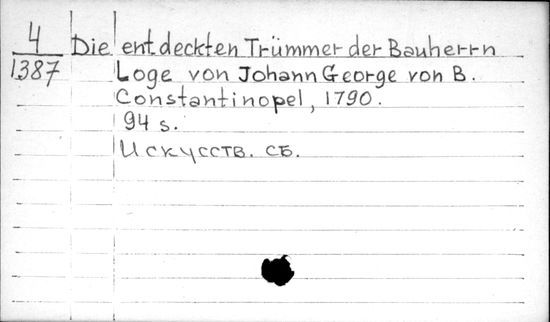 4
1387
Die entdeckten Trümmer der Bauherrn
Loge von Johann George von B.
Constantinopel, 1790.
94 s.
Искусств. сб.